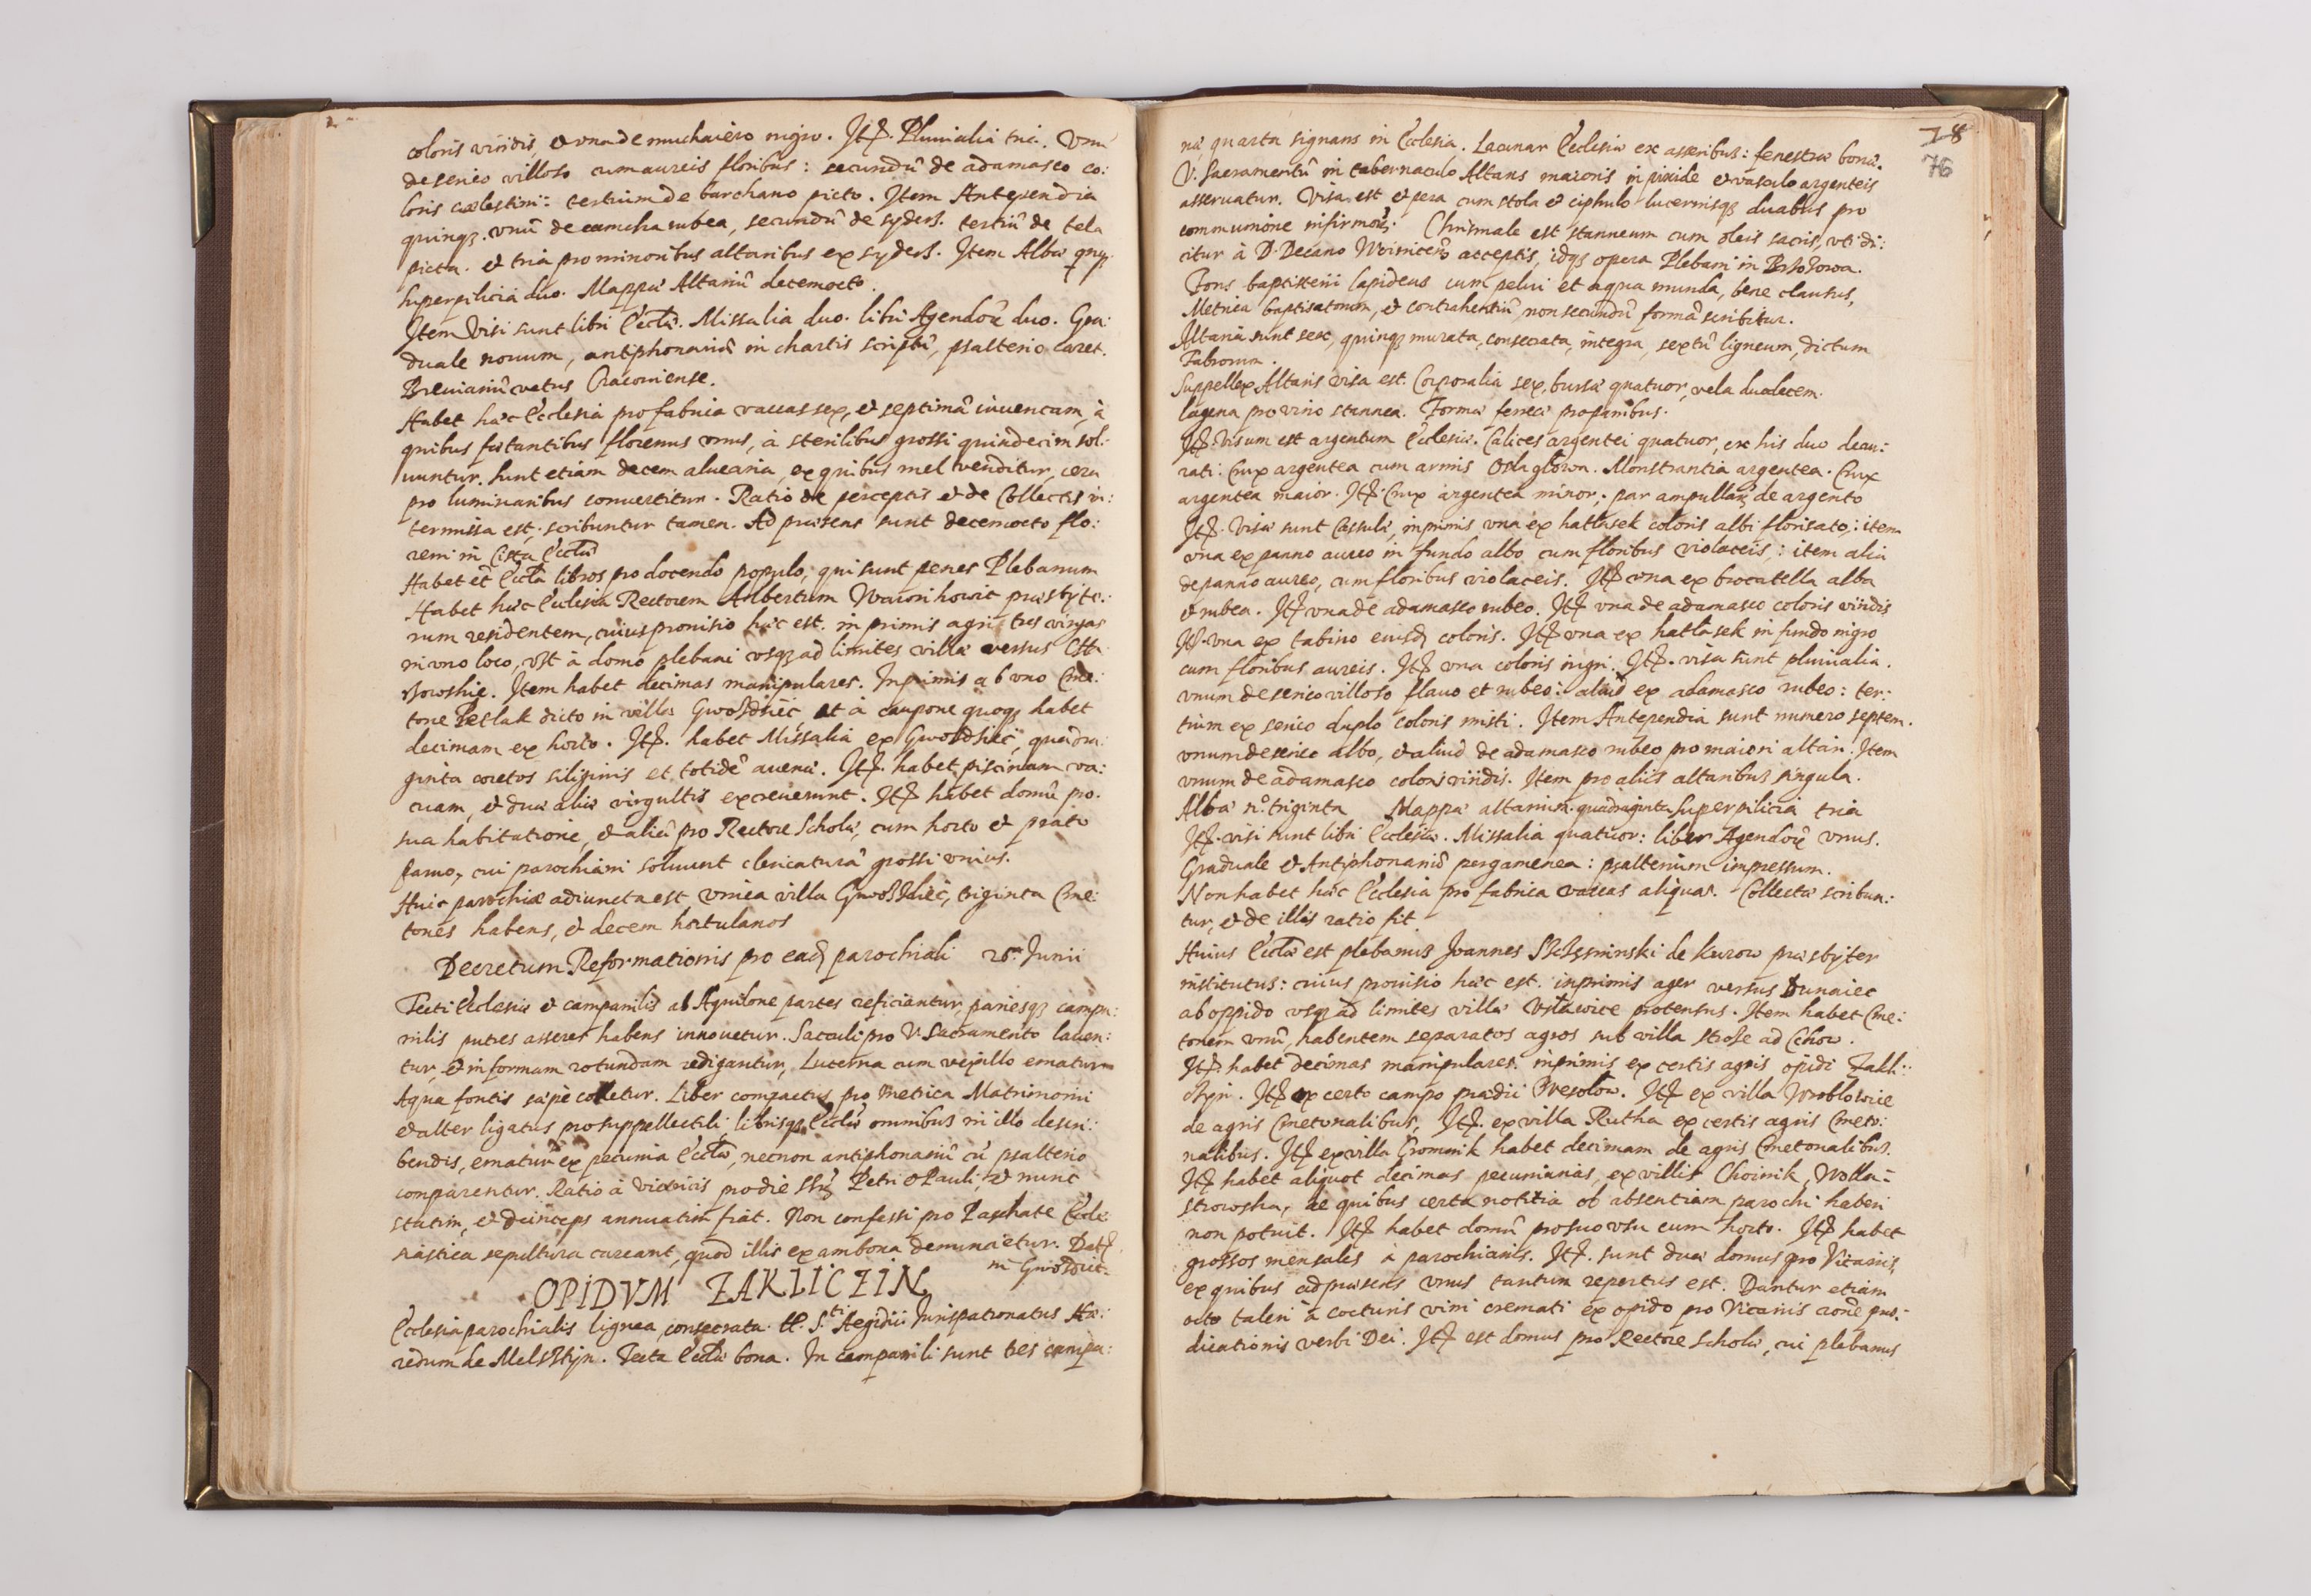 coloris viridis, et vna de muchaiero nigro. Itē. Pluuialia tria. Vnū
de serico villoso cum aureis floribus: secundū de adamasco co:
loris cælestini: tertium de barchano picto. Item Antependia
quinqȝ. vnū de camcha rubea, secundū de syders. tertiū de tela
picta. et tria pro minoribus altaribus ex syders. Item Albæ qnqȝ.
Superpilicia duo. Mappæ Altariū decemocto.
Item Visi sunt libri Eccłæ. Missalia duo. libri Agendorū duo. Gra:
duale nouum, antiphonariū in chartis scriptū, psalterio caret.
Breuiariū vetus Cracouiense.
Habet hæc Ecclesia pro fabrica vaccas sex, et septimā iuuencam, à
quibus fœtantibus florenus vnus, à sterilibus grossi quindecim sol:
uuntur. Sunt etiam decem aluearia, ex quibus mel venditur, cera
pro luminaribus conuertitur. Ratio de perceptis et de Collectis in:
termissa est, scribuntur tamen. Ad præsens sunt decemocto flo:
reni in Cista Eccłæ
Habet et Eccła libros pro docendo populo, qui sunt penes Plebanum
Habet hæc Ecclesia Rectorem Albertum præsbyte:
rum residentem, cuius prouisio hæc est. in primis agri tres virgas
in vno loco, vst à domo plebani vsqȝ ad limites villæ versus
Item habet decimas manipulares. Inprimis ab vno Cme:
tone Peslak dicto in villa Gwoździec, et à caupone quoqȝ habet
decimam ex horto. Itē. habet Missalia ex Gwoździec, quadra:
ginta coretos siliginis et totidē auenæ. Itē. habet piscinam va:
cuam, et duæ aliæ virgultis excreuerunt. Itē habet domū pro
sua habitatione, et aliā pro Rectore Scholæ, cum horto et prato
paruo, cui parochiani soluunt clericaturā grossi vnius.
Huic parochiæ adiuncta est vnica villa Gwoździec, triginta Cme:
tones habens, et decem hortulanos
Decretum Reformationis pro eadē parochiali 26. Junii
Tecti Ecclesiæ et campanilis ab Aquilone partes reficiantur, pariesqȝ campa:
nilis putres asseres habens innouetur. Sacculi pro V. Sacramento lauen:
tur, et in formam rotundam redigantur, Lucerna cum vexillo ematur
Aqua fontis sæpè coletur. Liber compactus pro metrica Matrimonii
et alter ligatus pro suppellectili, librisqȝ Eccłæ omnibus in illo descri:
bendis, ematur ex pecunia Eccłæ, necnon antiphonariū cū psalterio
comparentur. Ratio à Vitricis pro die SS. Petri et Pauli, et nunc
statim, et deinceps annuatim fiat. Non confessi pro Paschate Eccle:
siastica sepultura careant, quod illis ex ambona denuncietur. Datē
in Gwoździec.
OPIDVM ZAKLICZIN
Ecclesia parochialis lignea, consecrata. tt. S.ti Aegidii Jurispatronatus Hæ:
redum de Melsztijn. Tecta Eccłæ bona. In campanili sunt tres campa:
78
76
næ, quarta signans in Ecclesia. Lacunar Ecclesiæ ex asseribus: fenestræ bonæ.
V. Sacramentū in tabernaculo Altaris maioris in pixide et vasculo argenteis
asseruatur. Visa est et pera cum stola et ciphulo lucernisqȝ duabus pro
communione infirmorū. Chrismale est stanneum cum oleis sacris, vti di:
citur à D. Decano Woinicēn acceptis, idqȝ opera Plebani in
Fons baptisterii lapideus cum pelui et aqua munda, bene clausus,
Metrica baptisatorum, et contrahentiū non secundū formā scribitur.
Altaria sunt sex, quinqȝ murata, consecrata, integra, sextū ligneum, dictum
Fabrorum.
Suppellex Altaris visa est. Corporalia sex, bursæ quatuor, vela duodecem.
lagena pro vino stannea. Forma ferrea pro panibus.
Itē. Visum est argentum Ecclesiæ. Calices argentei quatuor, ex his duo deau:
rati: Crux argentea cum armis Osla głowa. Monstrantia argentea. Crux
argentea maior. Itē. Crux argentea minor, par ampullarū de argento
Itē. Visæ sunt Casulæ, inprimis vna ex hatlasek coloris albi florisato,: item
vna ex panno aureo in fundo albo cum floribus violaceis,: item alia
de panno aureo, cum floribus violaceis. Itē vna ex brocatella alba
et rubea. Itē vna de adamasco rubeo. Itē vna de adamasco coloris viridis
Itē. vna ex tabino eiusdē coloris. Itē vna ex hatlasek in fundo nigro
cum floribus aureis. Itē vna coloris nigri. Itē. visa sunt pluuialia.
vnum de serico villoso flauo et rubeo: aliud ex adamasco rubeo: ter:
tium ex serico duplo coloris misti. Item Antependia sunt numero septem.
vnum de serico albo, et aliud de adamasco rubeo pro maiori altari. Item
vnum de adamasco coloris viridis. Item pro aliis altaribus singula.
Albæ n.o triginta Mappæ altarium quadraginta Superpilicia tria
Itē. visi sunt libri Ecclesiæ. Missalia quatuor: liber Agendorū vnus.
Graduale et Antiphonariū pergamenea: psalterium impressum.
Non habet hæc Ecclesia pro fabrica vaccas aliquas. Collecta scribun:
tur, et de illis ratio fit
Huius Eccłæ est plebanus Joannes de Kurow præsbyter
institutus: cuius prouisio hæc est. inprimis ager versus Dunaiec
ab oppido vsqȝ ad limites villæ Vsławice protensus. Item habet Cme:
tonem vnū, habentem separatos agros sub villa Stroze ad
Itē. habet decimas manipulares. inprimis ex certis agris opidi Zakli:
czijn. Itē ex certo campo prædii Wesołow. Itē ex villa Wroblowice
de agris Cmetonalibus, Itē. ex villa Rutha ex certis agris Cmeto:
nalibus. Itē ex villa Gromnik habet decimam de agris Cmetonalibus.
Itē habet aliquot decimas pecuniarias, ex villis Choinik, Wolla=
strowska, de quibus certa notitia ob absentiam parochi haberi
non potuit. Itē habet domū pro suo vsu cum horto. Itē habet
grossos mensales à parochianis. Itē. sunt duæ domus pro Vicariis,
ex quibus ad præsens vnus tantum repertus est. Dantur etiam
octo taleri à cocturis vini cremati ex opido pro Vicariis rōne præ:
dicationis verbi Dei. Itē est domus pro Rectore Scholæ, cui plebanus